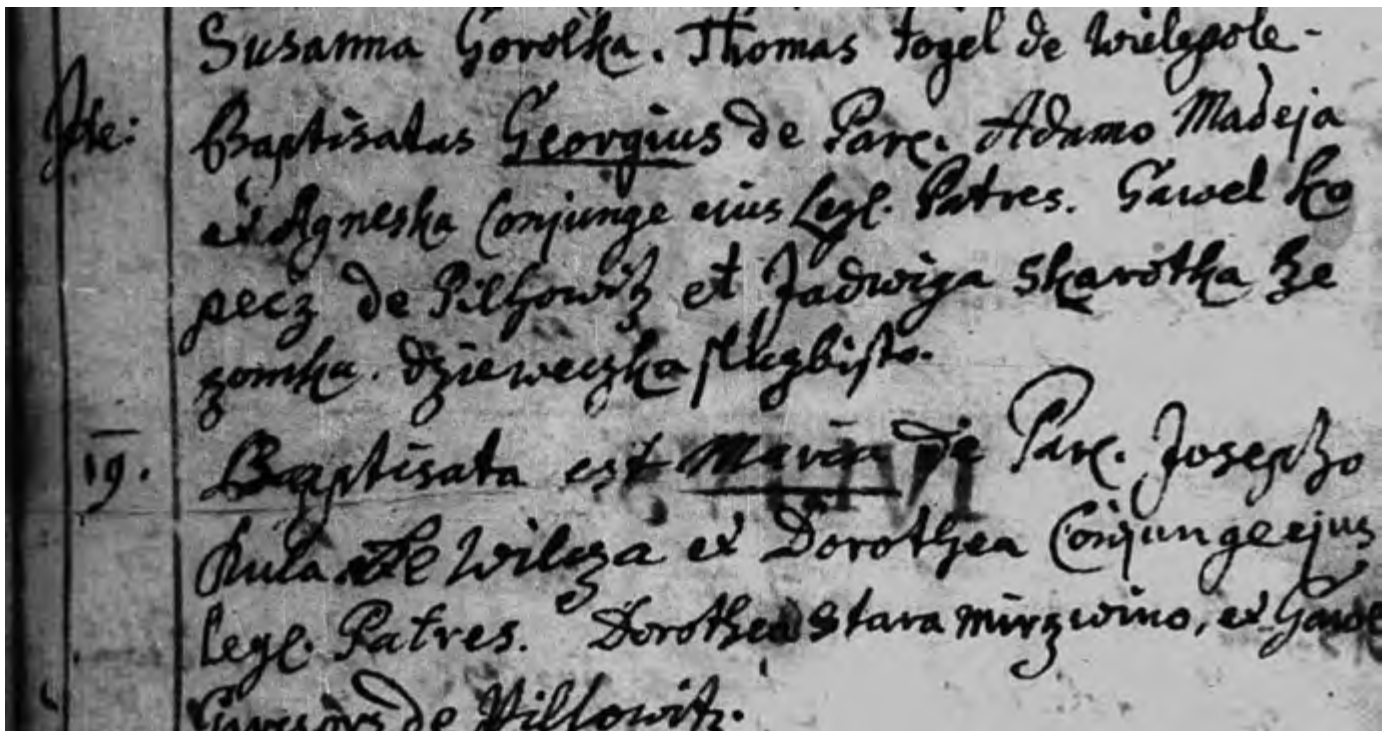 Susanna Gorolka. Thomas Fogel de Wielepole.
Jde: Baptisatus Georgius de Par. Adamo Madeja
et Agneska Conjunge eius Legl. Patres. Gawel Ko
pecz de Pilhowitz et Jadwiga Skarotka Ze
zomka. dzieweczka
19. Baptisata est Maria de Par. Josepho
Kula de Wilcza et Dorothea Conjunge ejus
legl. Patres. Dorothea Stara et Gawel
de Pillowitz.